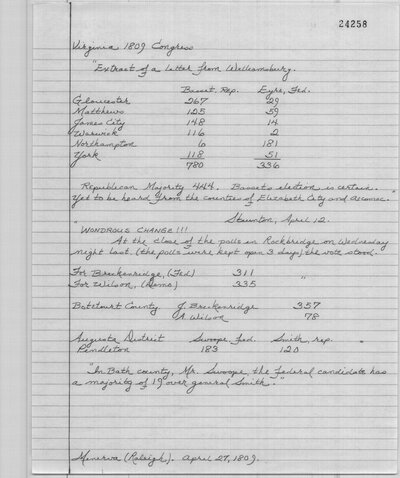 24258
Virginia 1809 Congress
"Extract of a letter from Williamsburg.
Basset. Rep. Eyre, Fed.
Gloucester 267 29
Matthews 125 59
James City 148 14
Warwick 116 2
Northampton 6 181
York 118 51
780 336
Republican Majority 444. Basset's election is certain.
Yet to be heard from the counties of Elizabeth City and Accomac."
Staunton, April 12.
"WONDROUS CHANGE!!!
At the close of the polls in Rockbridge on Wednesday
night last. (the polls were kept open 3 days) the vote stood.
For Breckenridge, (Fed) 311
For Wilson, (Demo) 335 "
Botetourt County J. Breckenridge 357
A Wilson 78
Augusta District Swoope, Fed. Smith, rep.
Pendleton 183 120 "
"In Bath county, Mr. Swoope, the Federal candidate has
a majority of 19 over general Smith."
Minerva (Raleigh). April 27, 1809.